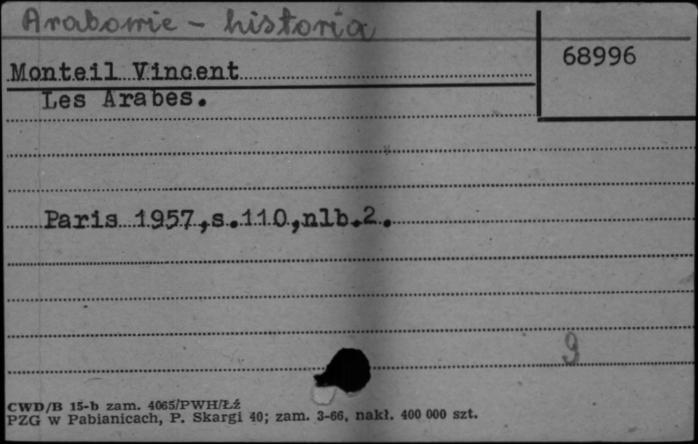 Arabowie - historia
68996
Monteil Vincent
Les Arabes.
Paris 1957,s.110,nlb.2.
9
CWD/B 15-b zam. 4065/PWH/Łź
PZG w Pabianicach, P. Skargi 40; zam. 3-66, nakł. 400 000 szt.